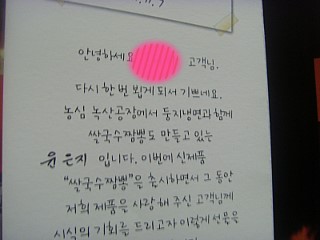 안녕하세요 고객님.
다시 한번 뵙게 되서 기쁘네요.
농심 녹산공장에서 둥지냉면과 함께
쌀국수짬뽕도 만들고 있는
윤은지 입니다. 이번에 신제품
"쌀국수짬뽕"을 출시하면서 그 동안
저희 제품을 사랑해 주신 고객님께
시식의 기회를 드리고자 이렇게 선물을